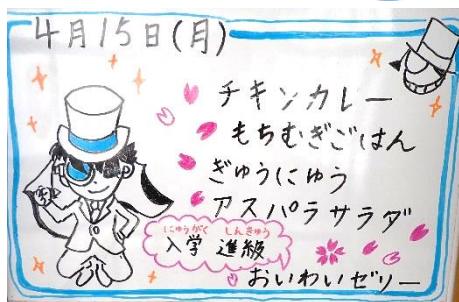 4月15日(月)
チキンカレー
もちむぎごはん
ぎゅうにゅう
アスパラサラダ
にゅうがく しんきゅう
入学 進級
おいわいゼリー